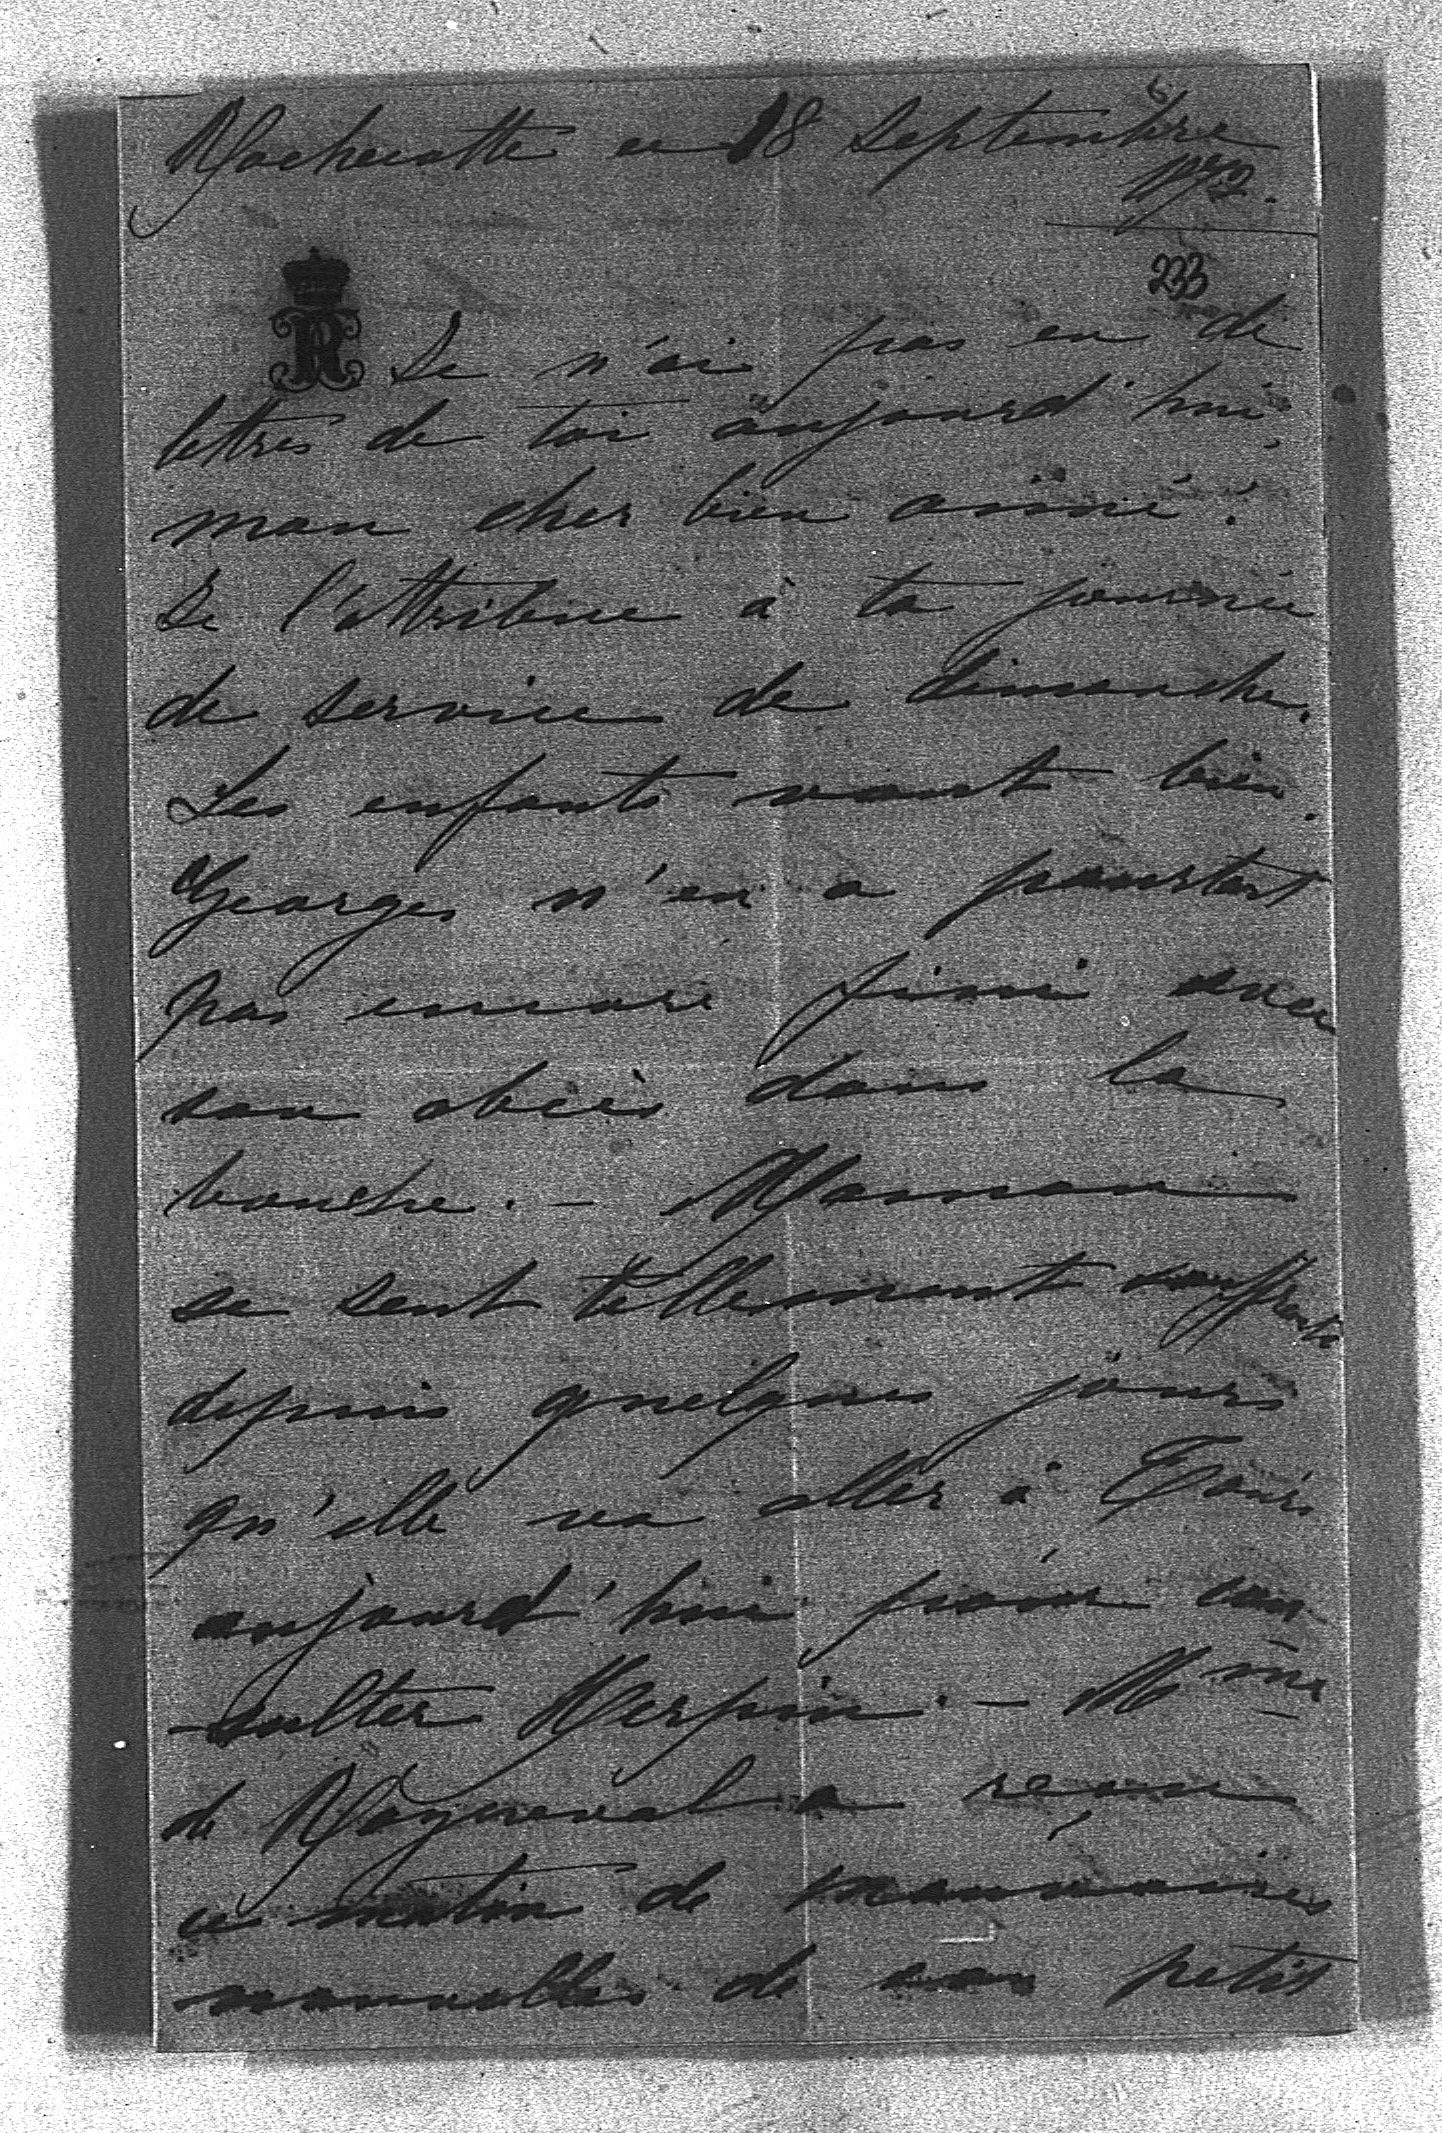 Rochecotte ce 18 Septembre
6
1872.
233
Je n'ai pas eu de
lettres de toi aujourd'hui,
mon cher bien aimé!
Je l'attribue à ta journée
de service de dimanche.
Les enfants vont bien.
Georges n'en a pourtant
pas encore fini avec
son abcès dans la
bouche. – Maman
se sent tellement souffrante
depuis quelques jours
qu'elle va aller à Tours
aujourd'hui pour con
-sulter Herpin. – Mme
de Rayneval a reçu
ce matin de mauvaises
nouvelles de son petit